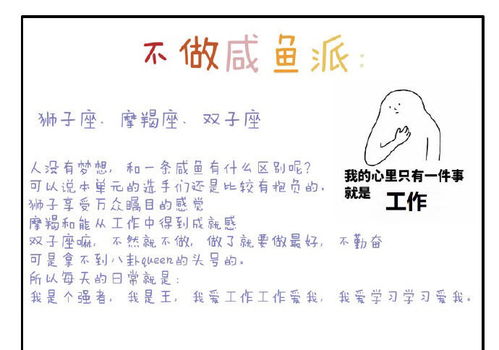 不做咸鱼派:
狮子座、摩羯座、双子座
人没有梦想, 和一条咸鱼有什么区别呢?
可以说本单元的选手们还是比较有抱负的。
狮子享受万众瞩目的感觉
摩羯和能从工作中得到成就感
双子座嘛, 不然就不做, 做了就要做最好, 不勤奋
可是拿不到八卦queen的头号的。
所以每天的日常就是:
我是个强者, 我是王, 我爱工作工作爱我, 我爱学习学习爱我。
我的心里只有一件事
就是 工作